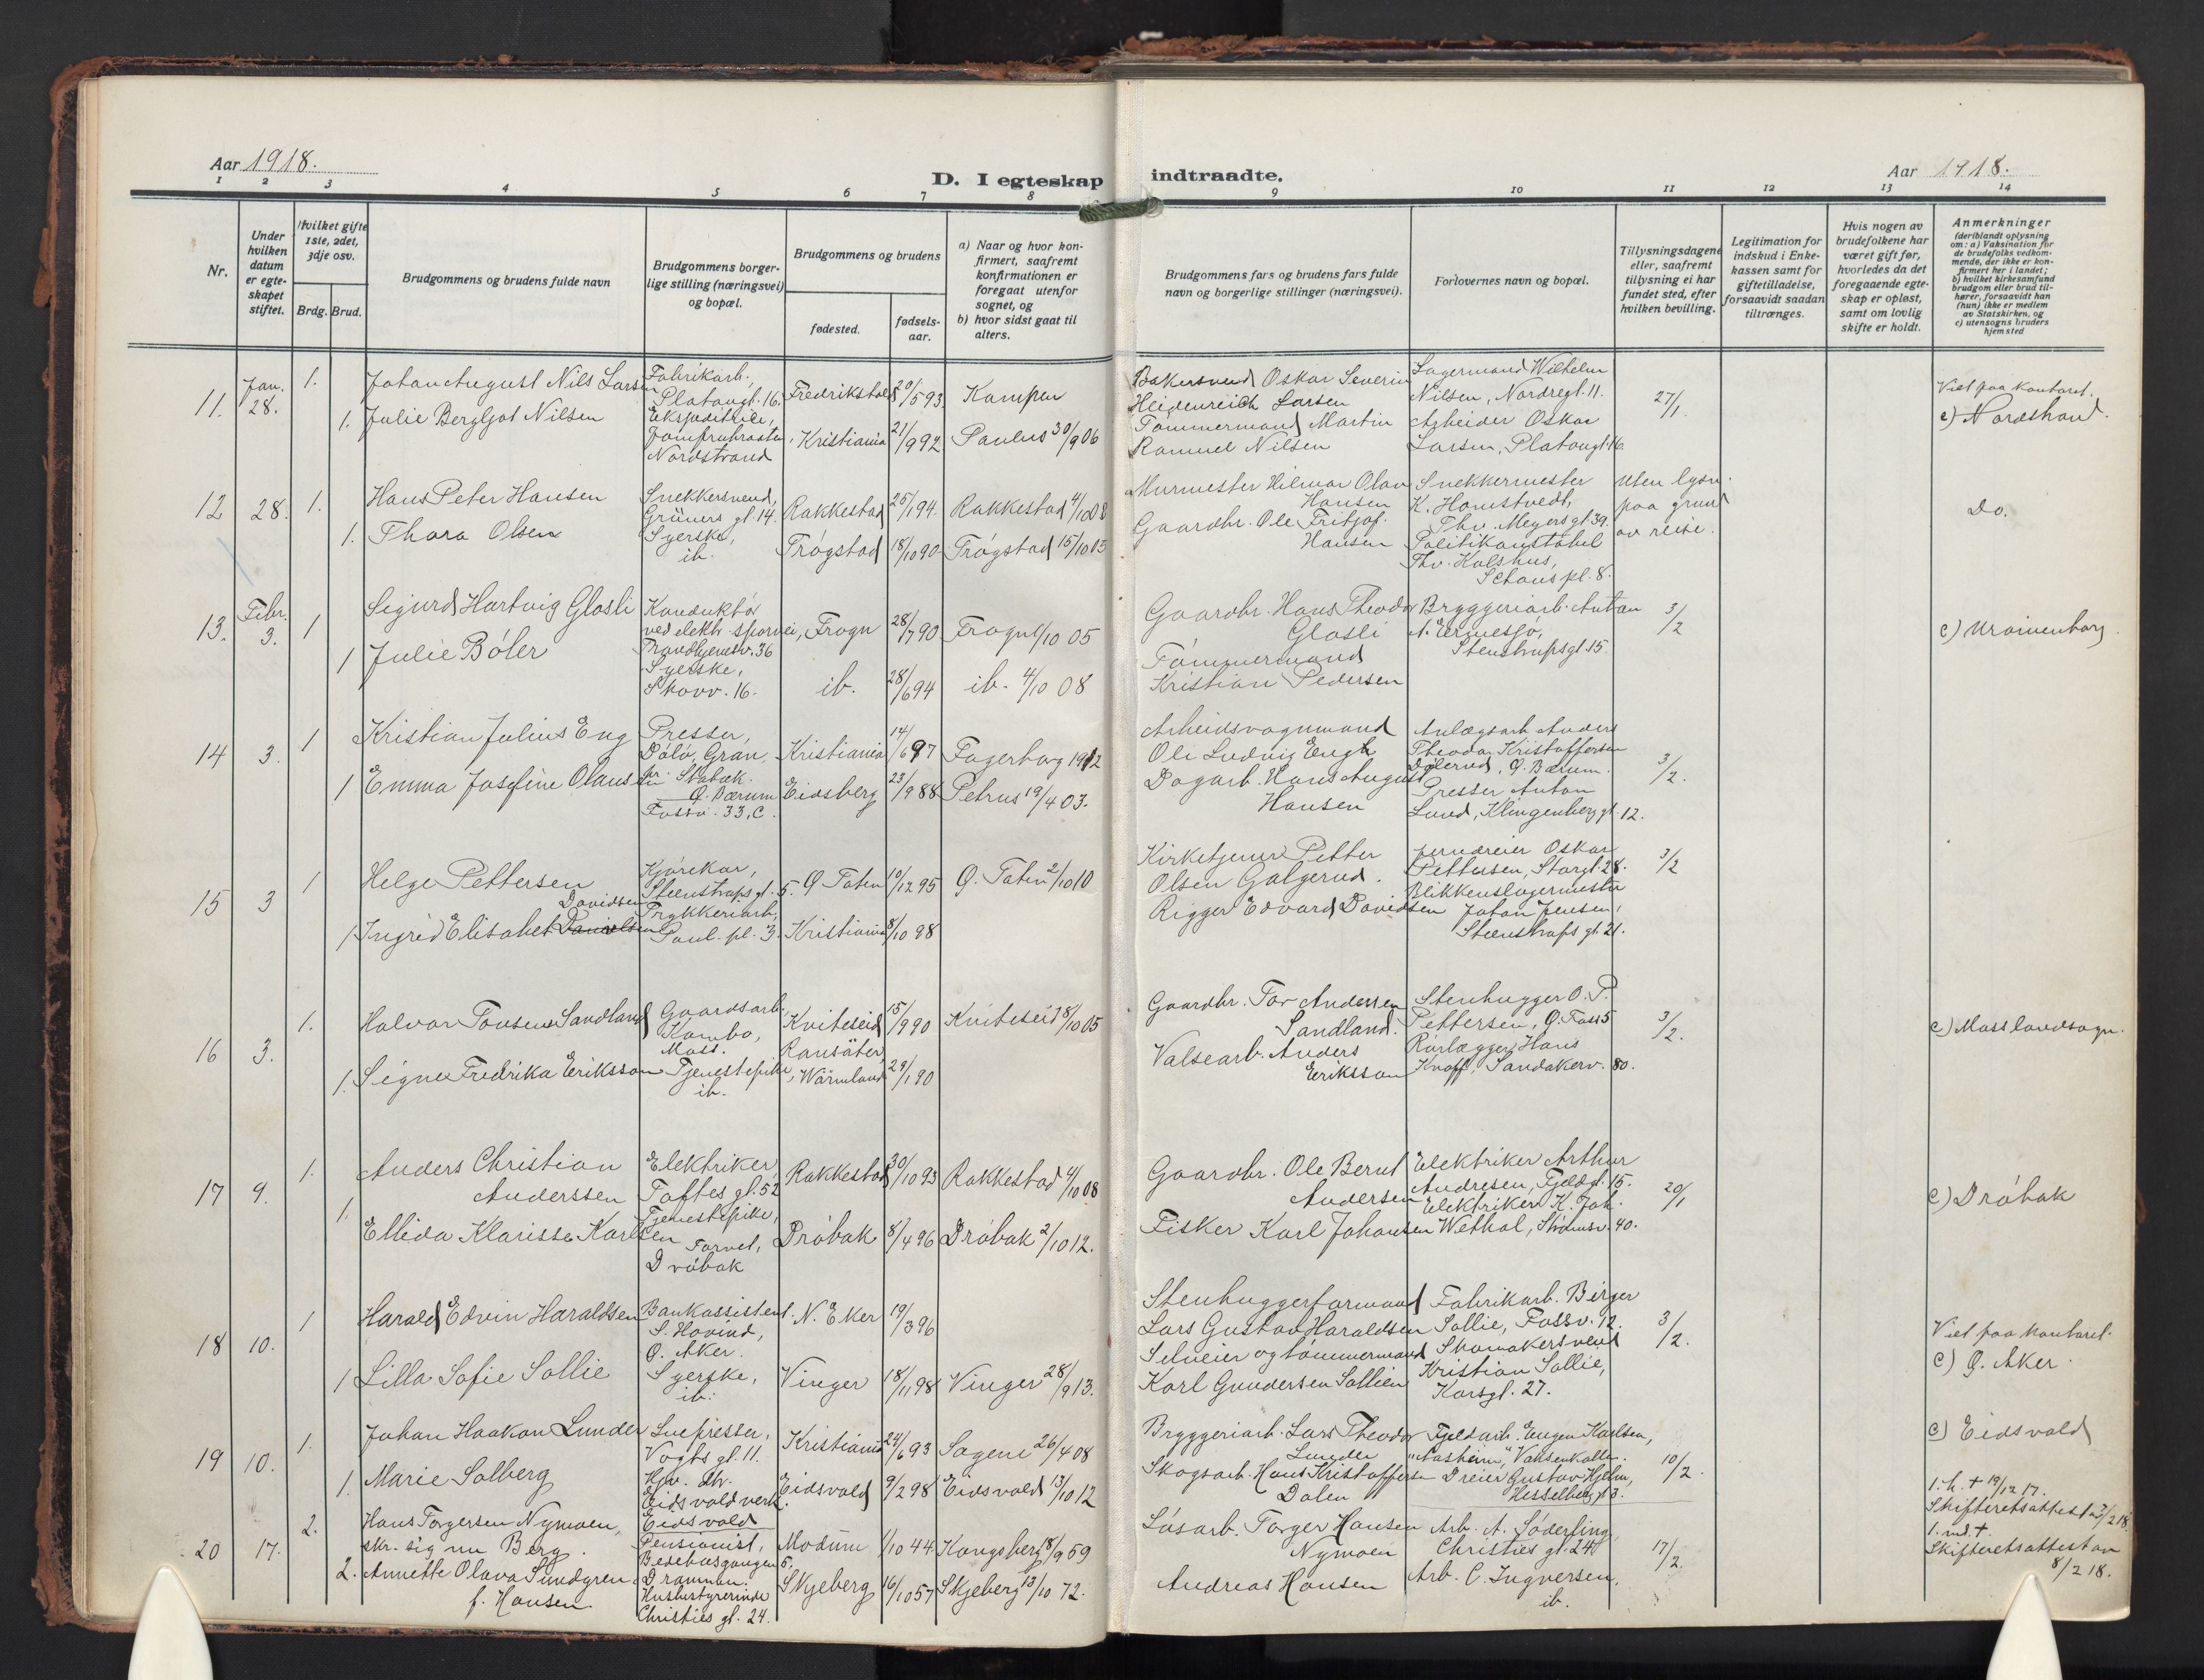 Aar 1918.
D. I egteskap indtraadte.
Aar 1918.
1 2 3 4 5 6 7 8 9 10 11 12 13 14
Nr.
Under hvilken datum er egteskapet stiftet.
Hvilket gifte 1ste, 2det, 3dje osv.
Brdg. Brud.
Brudgommens og brudens fulde navn
Brudgommens borgerlige stilling (næringsvei) og bopæl.
Brudgommens og brudens
fødested.
fødselsaar.
a) Naar og hvor konfirmert, saafremt konfirmationen er foregaat utenfor sognet, og
b) hvor sidst gaat til alters.
Brudgommens fars og brudens fars fulde navn og borgerlige stillinger (næringsvei).
Forlovernes navn og bopæl.
Tillysningsdagene eller, saafremt tillysning ei har fundet sted, efter hvilken bevilling.
Legitimation for indskud i Enkekassen samt for giftetilladelse, forsaavidt saadan tiltrænges.
Hvis nogen av brudefolkene har været gift før, hvorledes da det foregaaende egteskap er opløst, samt om lovlig skifte er holdt.
Anmerkninger
(deriblandt oplysning om: a) Vaksination for de brudefolks vedkommende, der ikke er konfirmert her i landet; b) hvilket kirkesamfund brudgom eller brud tilhører, forsaavidt han (hun) ikke er medlem av Statskirken, og c) utensogns bruders hjemsted
11. Jan. 28. 1.
Johan August Nils Larsen
Fabrikarb., Platougt. 16.
Fredrikstad 20/5 93
Kampen
Bakersvend Oskar Severin Heidenreich Larsen
Lagermand Wilhelm Nilsen, Nordregt. 11.
27/1.
Viet paa kontoret.
c) Nordstrand.
1. Julie Bergljot Nilsen
Ekspeditrice, Nordstrand
Kristiania 21/9 92
Paulus 30/9 06
Tømmermand Martin Ramuel Nilsen
Arbeider Oskar Larsen, Platougt. 16
12 28. 1.
Hans Peter Hansen
Snekkersvend, Grüners gt. 14.
Rakkestad 25/1 94.
Rakkestad 4/10 08
Murmester Hilmar Olav Hansen
Snekkermester K. Homstvedt, Thv. Meyersgt. 39.
Uten lysn. paa grund av reise.
Do.
1. Thora Olsen
Syerske, ib.
Trøgstad 18/10 90
Trøgstad 15/10 05
Gaardbr. Ole Fritjof Hansen
Politikonstabel Thv. Kalshus, Schous pl. 8.
13. Febr. 3. 1
Sigurd Hartvig Glosli
Konduktør ved elektr. sporvei, Trondhjemsv. 36
Frogn 28/7 90
Frogn 1/10 05
Gaardbr. Hans Theodor Glosli
Bryggeriarb. Anton A. Ermesjø, Stenstrupsgt. 15.
3/2
c) Uranienborg.
1 Julie Bøler
Syerske, Skovv. 16.
ib. 28/6 94
ib. 4/10 08
Tømmermand Kristian Pedersen
14 3. 1
Kristian Julius Eng
Presser, Dølø, Gran, pr. Stabæk. Ø. Bærum
Kristiania 14/6 97
Fagerborg 1912
Arbeidsvognmand Ole Ludvig Engh
Anlægsarb. Anders Theodor Kristoffersen Dølerud, Ø. Bærum.
3/2.
1 Emma Josefine Olaussen
Fossv. 33, C.
Eidsberg 23/9 88
Petrus 19/4 03.
Dagarb. Hans August Hansen
Presser Anton Lund, Klingenberg gt. 12.
15 3 1
Helge Pettersen
Kjørekar, Steenstrups gt. 5.
Ø Toten 10/12 95
Ø. Toten 2/10 10
Kirketjener Petter Olsen Galgerud.
Jerndreier Oskar Pettersen, Storgt. 28.
3/2
1 Ingrid Elisabet Danielsen Davidsen
Trykkeriarb, Paul. pl. 3.
Kristiania 8/10 98
Rigger Edvard Davidsen
Blikkenslagermester Johan Jensen, Steenstrups gt. 21.
16 3. 1.
Halvor Tovsen Sandland
Gaardsarb. Kambo, Moss.
Kviteseid 15/9 90
Kviteseid 8/10 05
Gaardbr. Tov Anderssen Sandland.
Stenhugger O. P. Pettersen, Ø. Foss 5
3/2.
c) Moss landsogn.
1. Signe Fredrika Eriksson
Tjenestepike, ib.
Ransäter, Wärmland 29/1 90
Valsearb. Anders Eriksson
Rørlægger Hans Knoff, Sandakerv. 80.
17 9. 1.
Anders Christian Anderssen
Elektriker, Toftes gt. 52
Rakkestad 30/10 93
Rakkestad 4/10 08
Gaardbr. Ole Bernt Andersen
Elektriker Arthur Andresen, Fjeldgt. 15.
20/1
c) Drøbak
1. Ellida Klarisse Karlsen
Tjenestepike, Torvet, Drøbak
Drøbak 8/4 96
Drøbak 2/10 12.
Fisker Karl Johansen
Elektriker K. Joh. Wethal, Strømsv. 40.
18 10. 1
Harald Edvin Haraldsen
Bankassistent. S. Hovind, Ø. Aker.
N. Eker 19/3 96
Stenhuggerformand Lars Gustav Haraldsen
Fabrikarb. Birger Sollie, Fossv. 12.
3/2.
Viet paa kontoret.
c) Ø. Aker.
1 Lilla Sofie Sollie
Syerske, ib.
Vinger 18/11 98
Vinger 28/9 13.
Selveier og tømmermand Karl Gundersen Sollien
Skomakersvend Kristian Sollie, Korsgt. 27.
19 10. 1.
Johan Haakon Lunder
Snepresser, Vogts gt. 11.
Kristiania 24/6 93
Sagene 26/4 08
Bryggeriarb. Lars Theodor Lunder
Fjeldarb. Eugen Karlsen, "Aasheim", Voksenkollen.
10/2.
c) Eidsvold
1. Marie Solberg
Hjv. dtr. Eidsvold verk. Eidsvold
Eidsvold 9/2 98
Eidsvold 13/10 12
Skogsarb. Hans Kristoffersen Dalen
Dreier Gustav Hjelm, Hesselberg gt. 3.
20 17. 2.
Hans Torgersen Nymoen, skr. sig nu Berg.
Pensionist, Bedehusgangen 5. Drammen.
Modum 1/10 44
Kongsberg 18/9 59
Løsarb. Torger Hansen Nymoen
Arb. A. Søderling, Christies gt. 24
17/2.
1. h. † 19/12 17.
Skifteretsattest av 3/2 18.
2. Annette Olava Sundgren f. Hansen.
Husbestyrerinde Christies gt. 24.
Skjeberg 16/10 57
Skjeberg 13/10 72.
Andreas Hansen
Arb. C. Ingversen, ib.
1. md. †.
Skifteretsattest av 8/2 18.